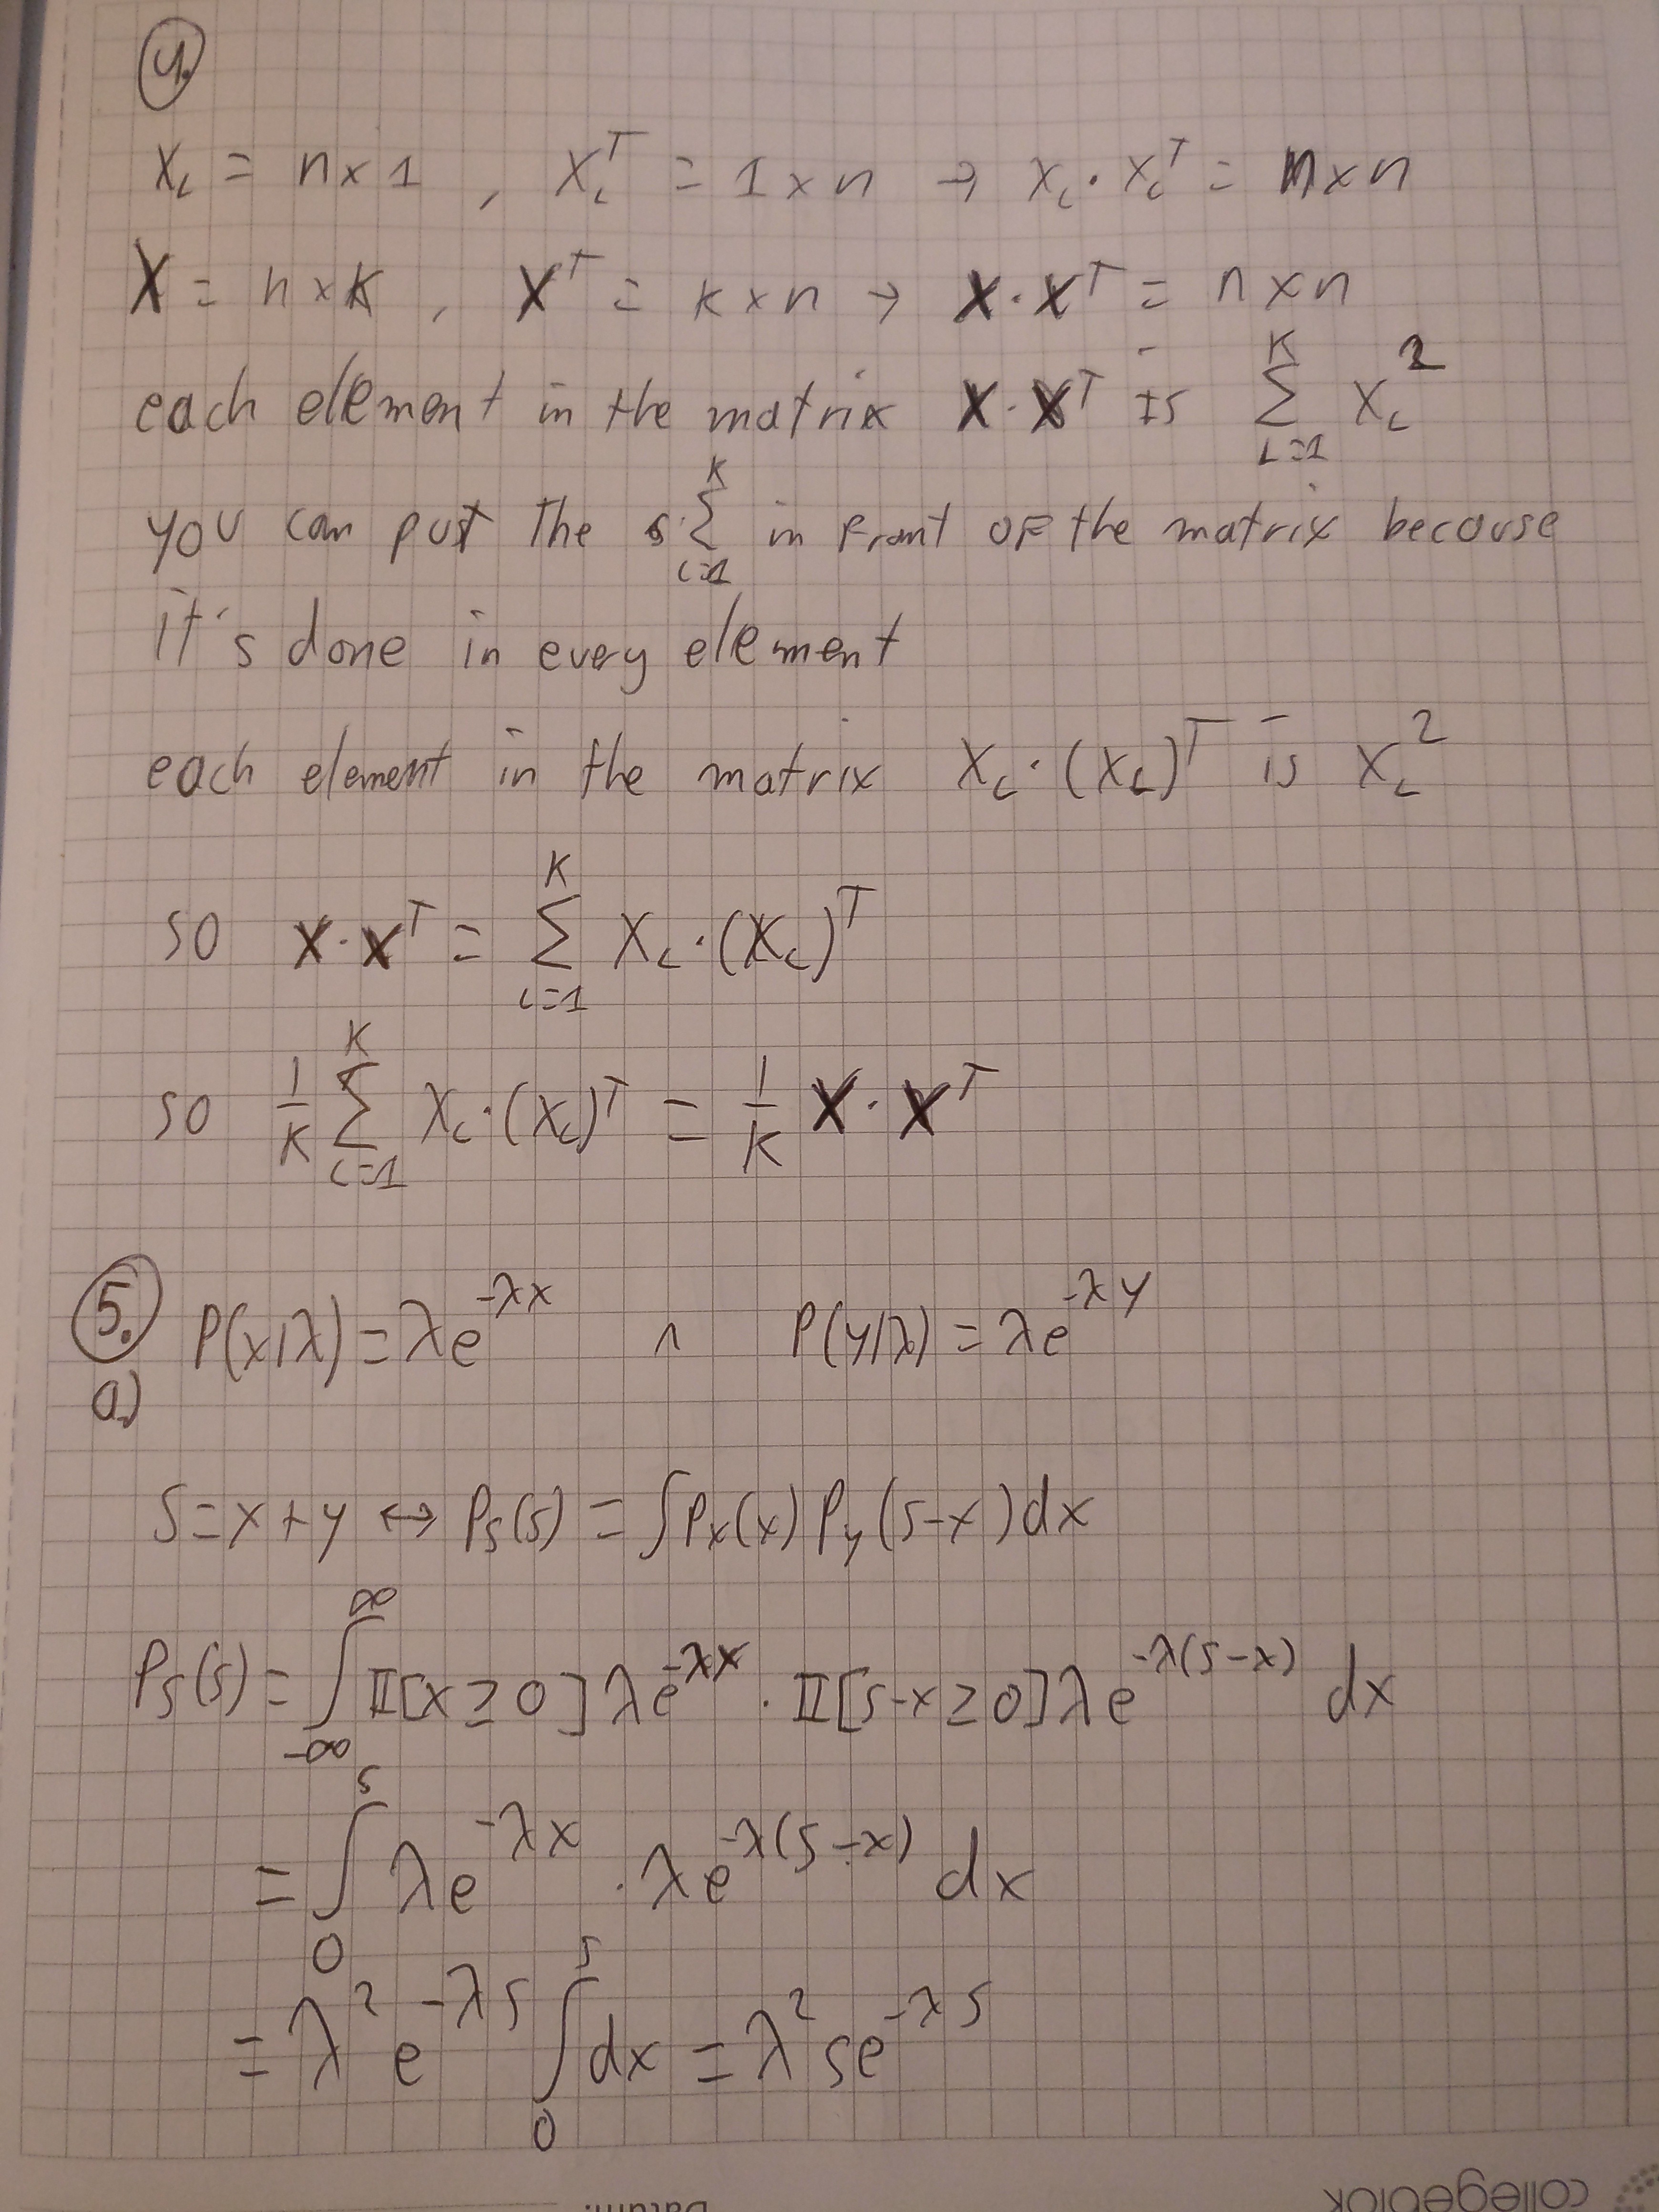 4.
x_i = n x 1 , x_i^T = 1 x n → x_i · x_i^T = n x n
X = n x K , X^T = K x n → X · X^T = n x n
each element in the matrix X · X^T is ∑_{i=1}^{K} x_i^2
you can put the ∑_{i=1}^{K} in front of the matrix because
it's done in every element
each element in the matrix x_i · (x_i)^T is x_i^2
so X · X^T = ∑_{i=1}^{K} x_i · (x_i)^T
so 1/K ∑_{i=1}^{K} x_i · (x_i)^T = 1/K X · X^T
5. P(x|λ) = λe^{-λx} ∧ P(y|λ) = λe^{-λy}
a)
S = x + y ↔ P_S(s) = ∫ P_x(x) P_y(s-x) dx
P_S(s) = ∫_{-∞}^{∞} 𝕀[x ≥ 0] λe^{-λx} · 𝕀[s-x ≥ 0] λe^{-λ(s-x)} dx
= ∫_0^s λe^{-λx} · λe^{-λ(s-x)} dx
= λ^2 e^{-λs} ∫_0^s dx = λ^2 s e^{-λs}
Datum:
collegeblok